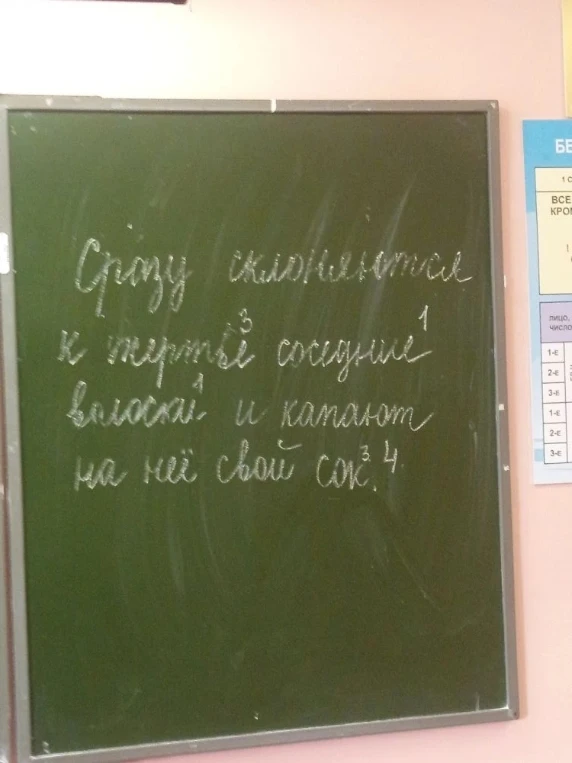 Сразу склоняются
к жертве³ соседние¹
волоски¹ и капают
на неё свой сок³.⁴
БЕ
1 С
ВСЕ
КРОМ
ЛИЦО,
ЧИСЛО
1-Е
2-Е
3-Е
1-Е
2-Е
3-Е